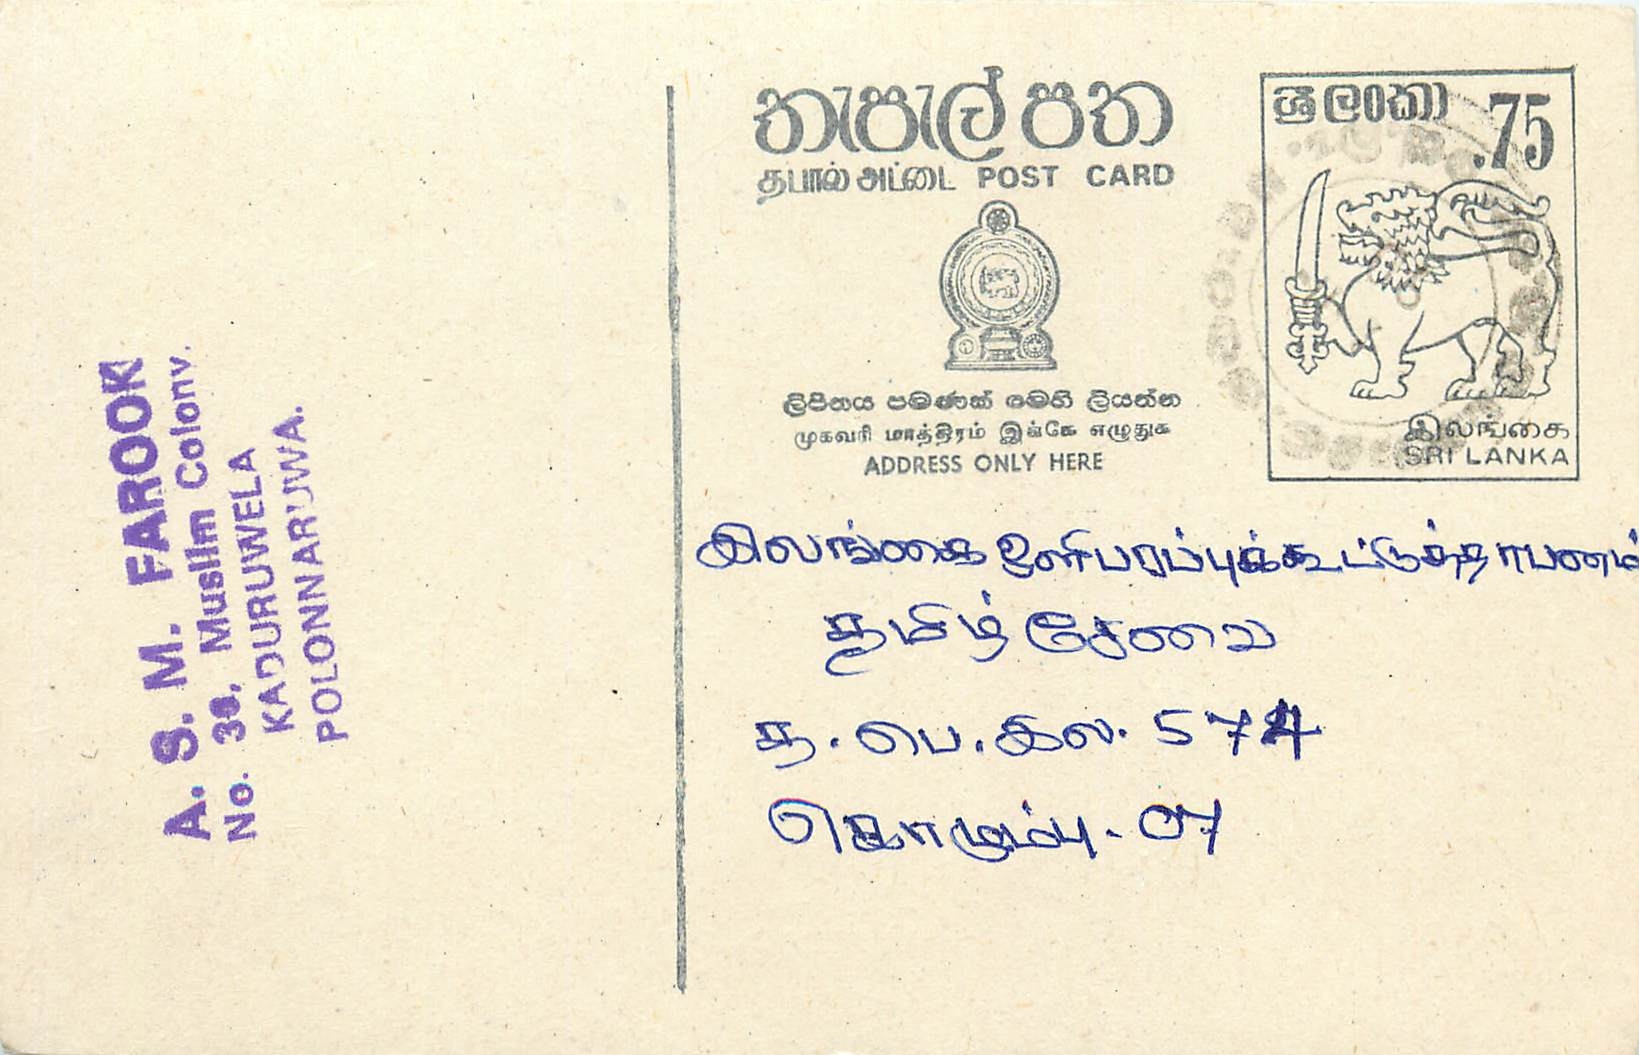 තැපැල් පත
தபால் அட்டை POST CARD
ශ්‍රී ලංකා .75
ලිපිනය පමණක් මෙහි ලියන්න
முகவரி மாத்திரம் இங்கே எழுதுக
ADDRESS ONLY HERE
இலங்கை
SRI LANKA
இலங்கை ஒளிபரப்புக்கூட்டுத்தாபனம்
தமிழ் சேவை
த.பெ.இல. 574
கொழும்பு - 07
A. S. M. FAROOK
No. 38, Muslim Colony.
KADURUWELA
POLONNARUWA.